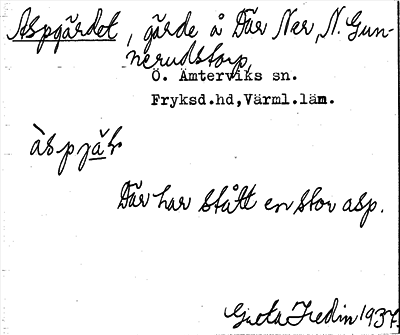 Aspgärdet, gärde å Där Ner, N. Gun-
nerudstorp,
Ö. Ämterviks sn.
Fryksd.hd,Värml.län.
àspjäḷ
Där har stått en stor asp.
Greta Fredin 1937.